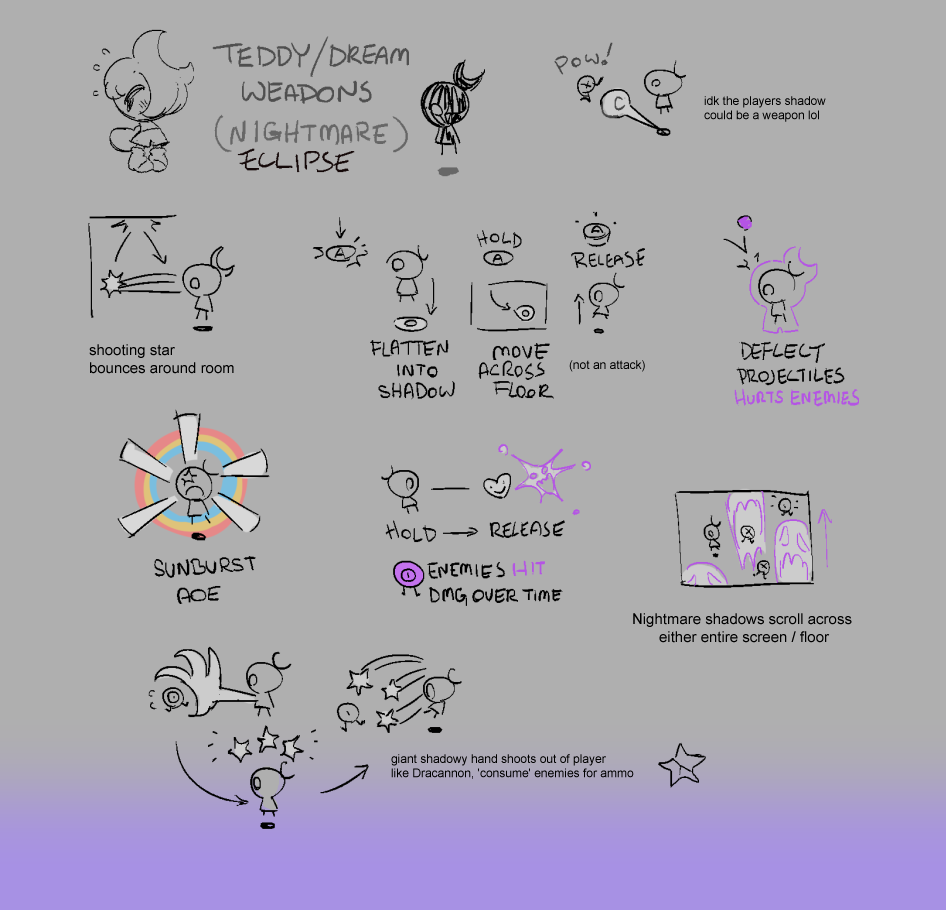 TEDDY/DREAM
WEADONS
(NIGHTMARE)
ECLIPSE
POW!
C
idk the players shadow
could be a weapon lol
shooting star
bounces around room
A
FLATTEN
INTO
SHADOW
HOLD
A
MOVE
ACROSS
FLOOR
A
RELEASE
(not an attack)
DEFLECT
PROJECTILES
HURTS ENEMIES
SUNBURST
AOE
HOLD → RELEASE
ENEMIES HIT
DMG OVER TIME
Nightmare shadows scroll across
either entire screen / floor
giant shadowy hand shoots out of player
like Dracannon, 'consume' enemies for ammo